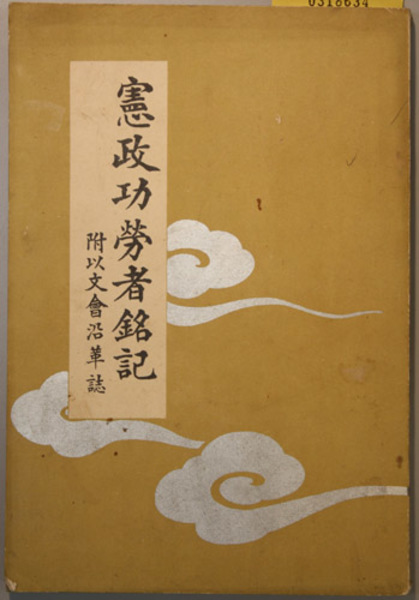 0318634
憲政功勞者銘記
附以文會沿革誌